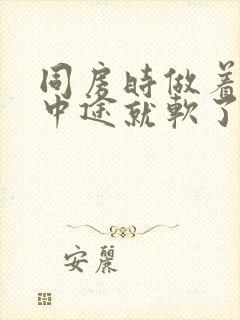 同房時做着
中途就軟了
安麗